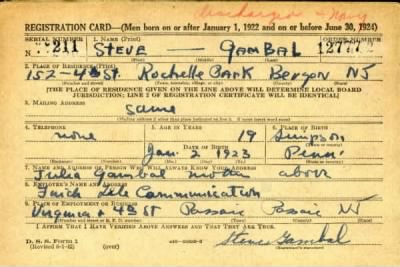 Discharged Navy
REGISTRATION CARD—(Men born on or after January 1, 1922 and on or before June 30, 1924)
SERIAL NUMBER 1. NAME (Print) ORDER NUMBER
211 STEVE — GAMBAL 12777
2. PLACE OF RESIDENCE (Print)
152-4th St. Rochelle Park Bergen NJ
[THE PLACE OF RESIDENCE GIVEN ON THE LINE ABOVE WILL DETERMINE LOCAL BOARD
JURISDICTION; LINE 2 OF REGISTRATION CERTIFICATE WILL BE IDENTICAL]
3. MAILING ADDRESS
same
4. TELEPHONE 5. AGE IN YEARS 6. PLACE OF BIRTH
none 19 Simpson
DATE OF BIRTH
Jan. 2 1923 Penn
7. NAME AND ADDRESS OF PERSON WHO WILL ALWAYS KNOW YOUR ADDRESS
Julia Gambal mother above
8. EMPLOYER'S NAME AND ADDRESS
Communication
9. PLACE OF EMPLOYMENT OR BUSINESS
Virginia + 4th St Passaic Passaic NJ
I AFFIRM THAT I HAVE VERIFIED ABOVE ANSWERS AND THAT THEY ARE TRUE.
D. S. S. Form 1
(Revised 6-1-42) (over)
Steve Gambal